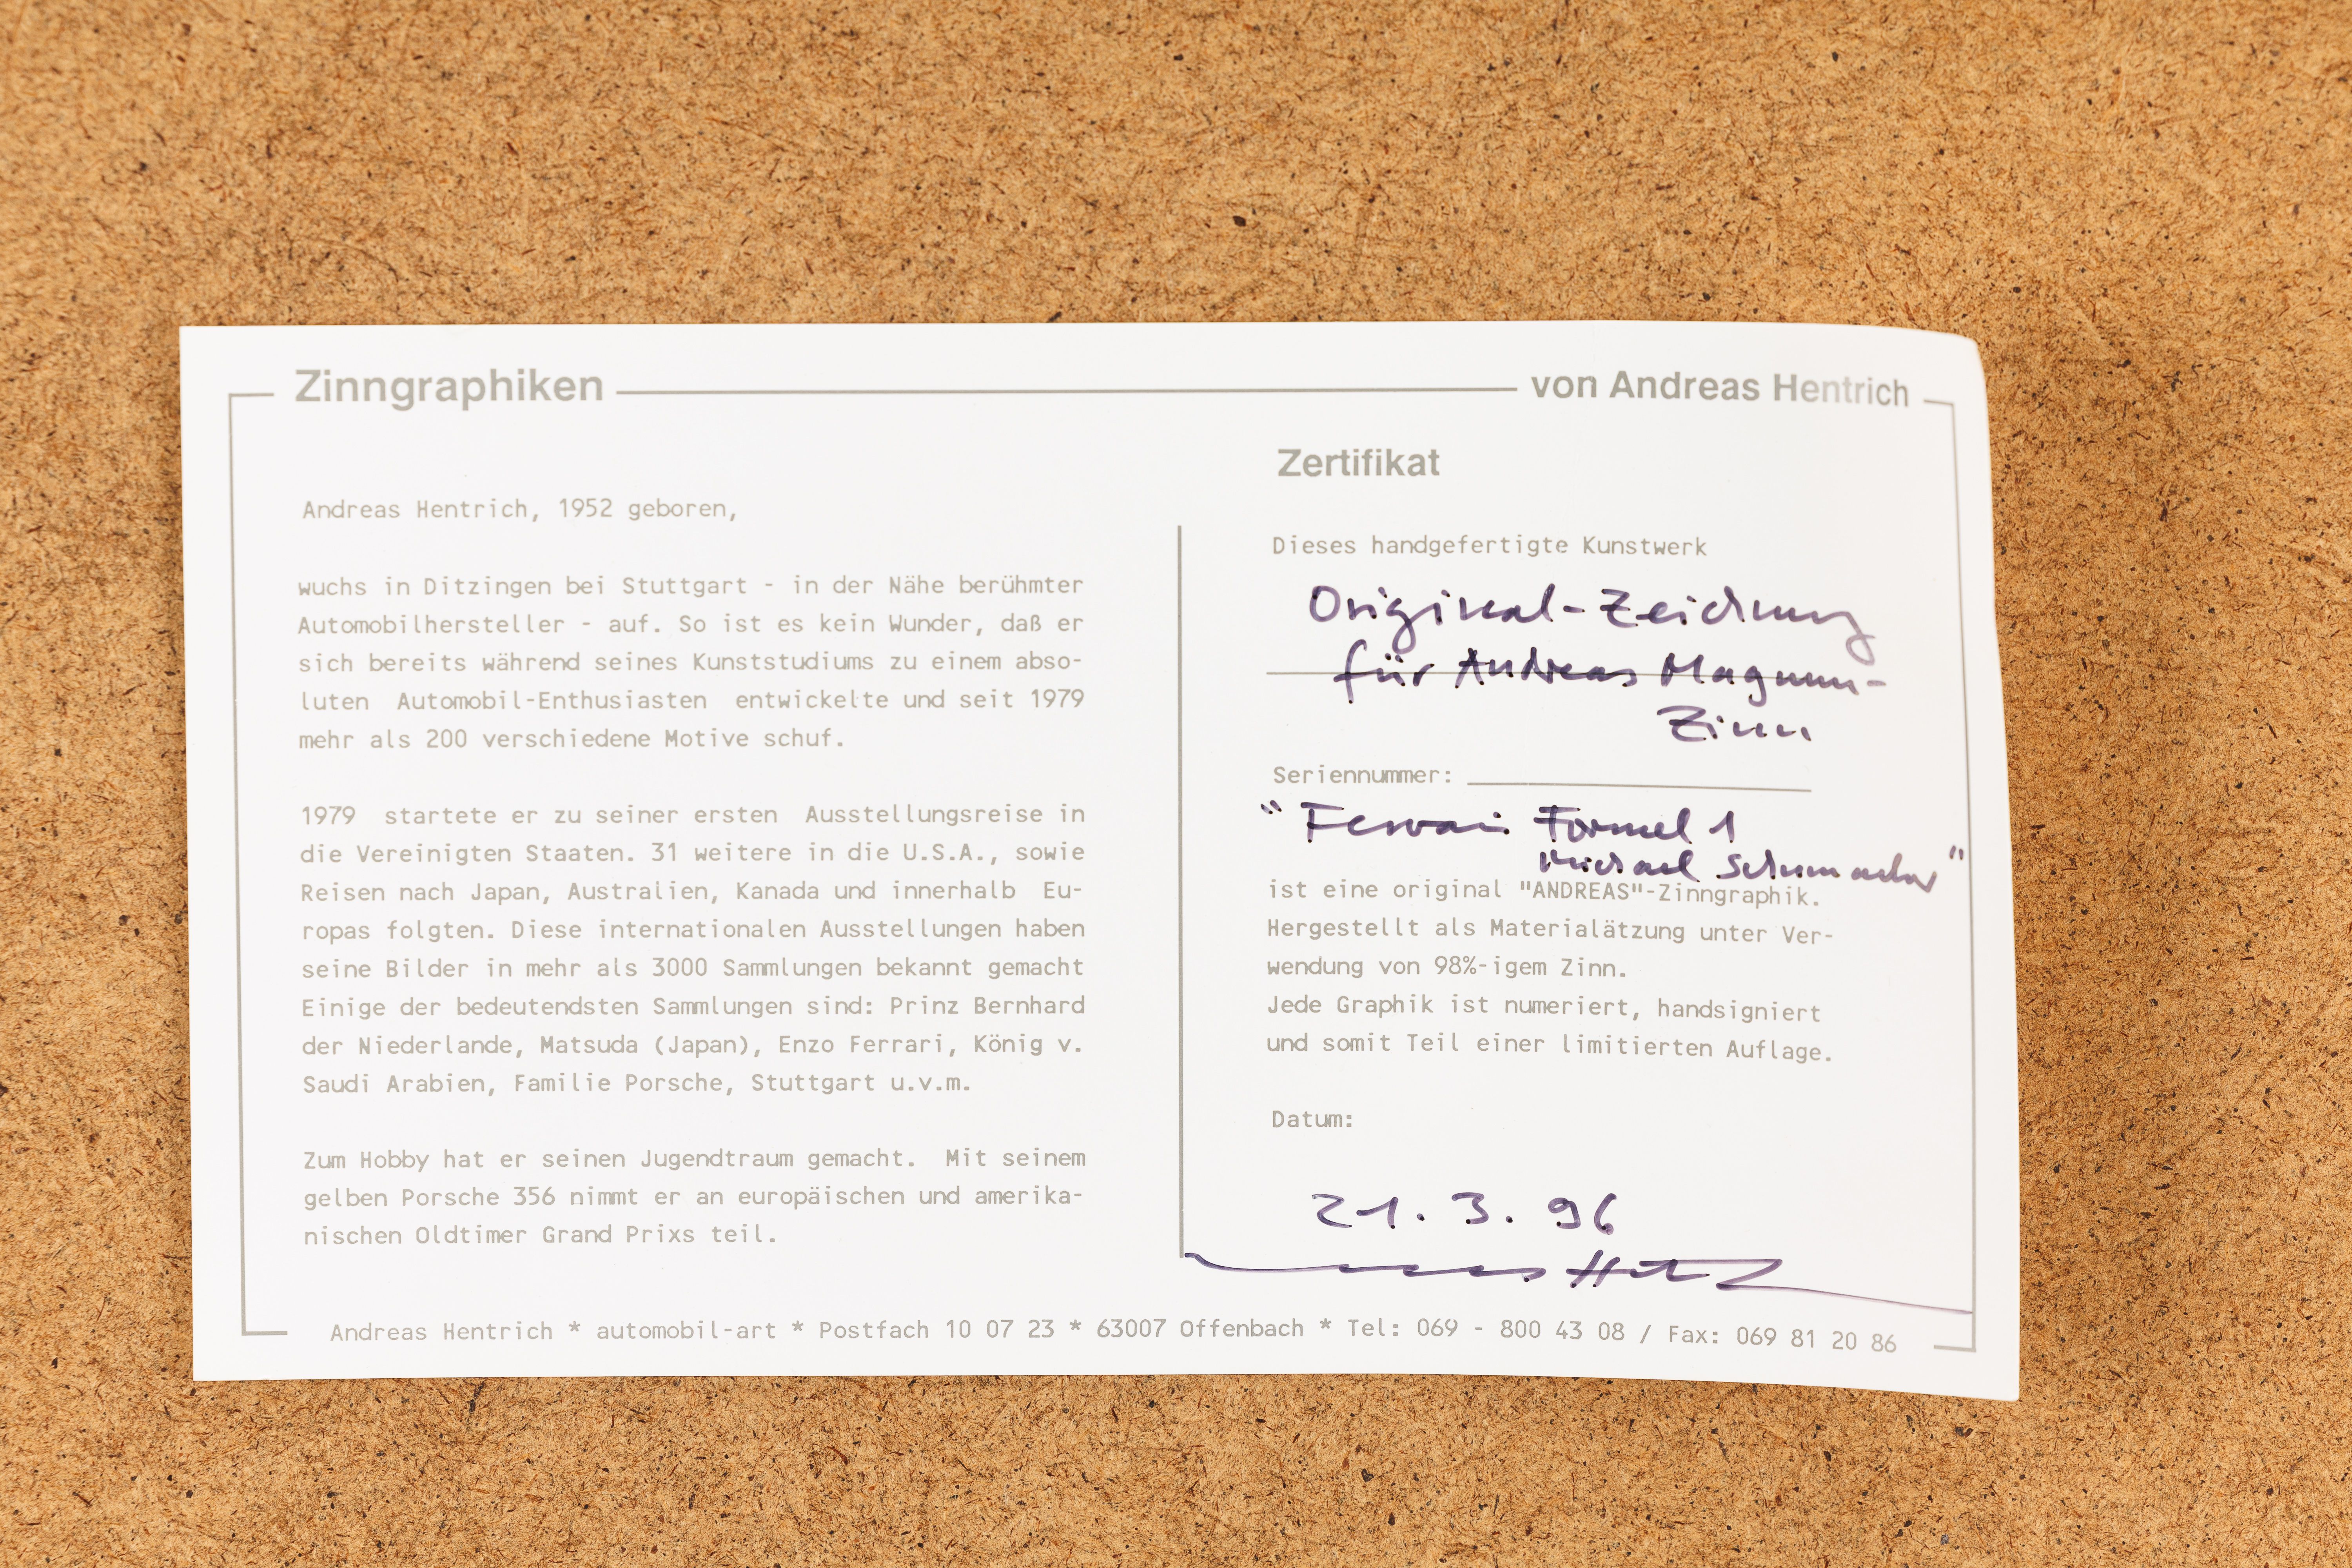 Zinngraphiken von Andreas Hentrich
Andreas Hentrich, 1952 geboren,
wuchs in Ditzingen bei Stuttgart - in der Nähe berühmter
Automobilhersteller - auf. So ist es kein Wunder, daß er
sich bereits während seines Kunststudiums zu einem abso-
luten Automobil-Enthusiasten entwickelte und seit 1979
mehr als 200 verschiedene Motive schuf.
1979 startete er zu seiner ersten Ausstellungsreise in
die Vereinigten Staaten. 31 weitere in die U.S.A., sowie
Reisen nach Japan, Australien, Kanada und innerhalb Eu-
ropas folgten. Diese internationalen Ausstellungen haben
seine Bilder in mehr als 3000 Sammlungen bekannt gemacht
Einige der bedeutendsten Sammlungen sind: Prinz Bernhard
der Niederlande, Matsuda (Japan), Enzo Ferrari, König v.
Saudi Arabien, Familie Porsche, Stuttgart u.v.m.
Zum Hobby hat er seinen Jugendtraum gemacht. Mit seinem
gelben Porsche 356 nimmt er an europäischen und amerika-
nischen Oldtimer Grand Prixs teil.
Zertifikat
Dieses handgefertigte Kunstwerk
Original-Zeichnung
für Andreas Magnum-
Zinn
Seriennummer:
"Ferrari Formel 1
Michael Schumacher"
ist eine original "ANDREAS"-Zinngraphik.
Hergestellt als Materialätzung unter Ver-
wendung von 98%-igem Zinn.
Jede Graphik ist numeriert, handsigniert
und somit Teil einer limitierten Auflage.
Datum:
21. 3. 96
Andreas Hentrich * automobil-art * Postfach 10 07 23 * 63007 Offenbach * Tel: 069 - 800 43 08 / Fax: 069 81 20 86